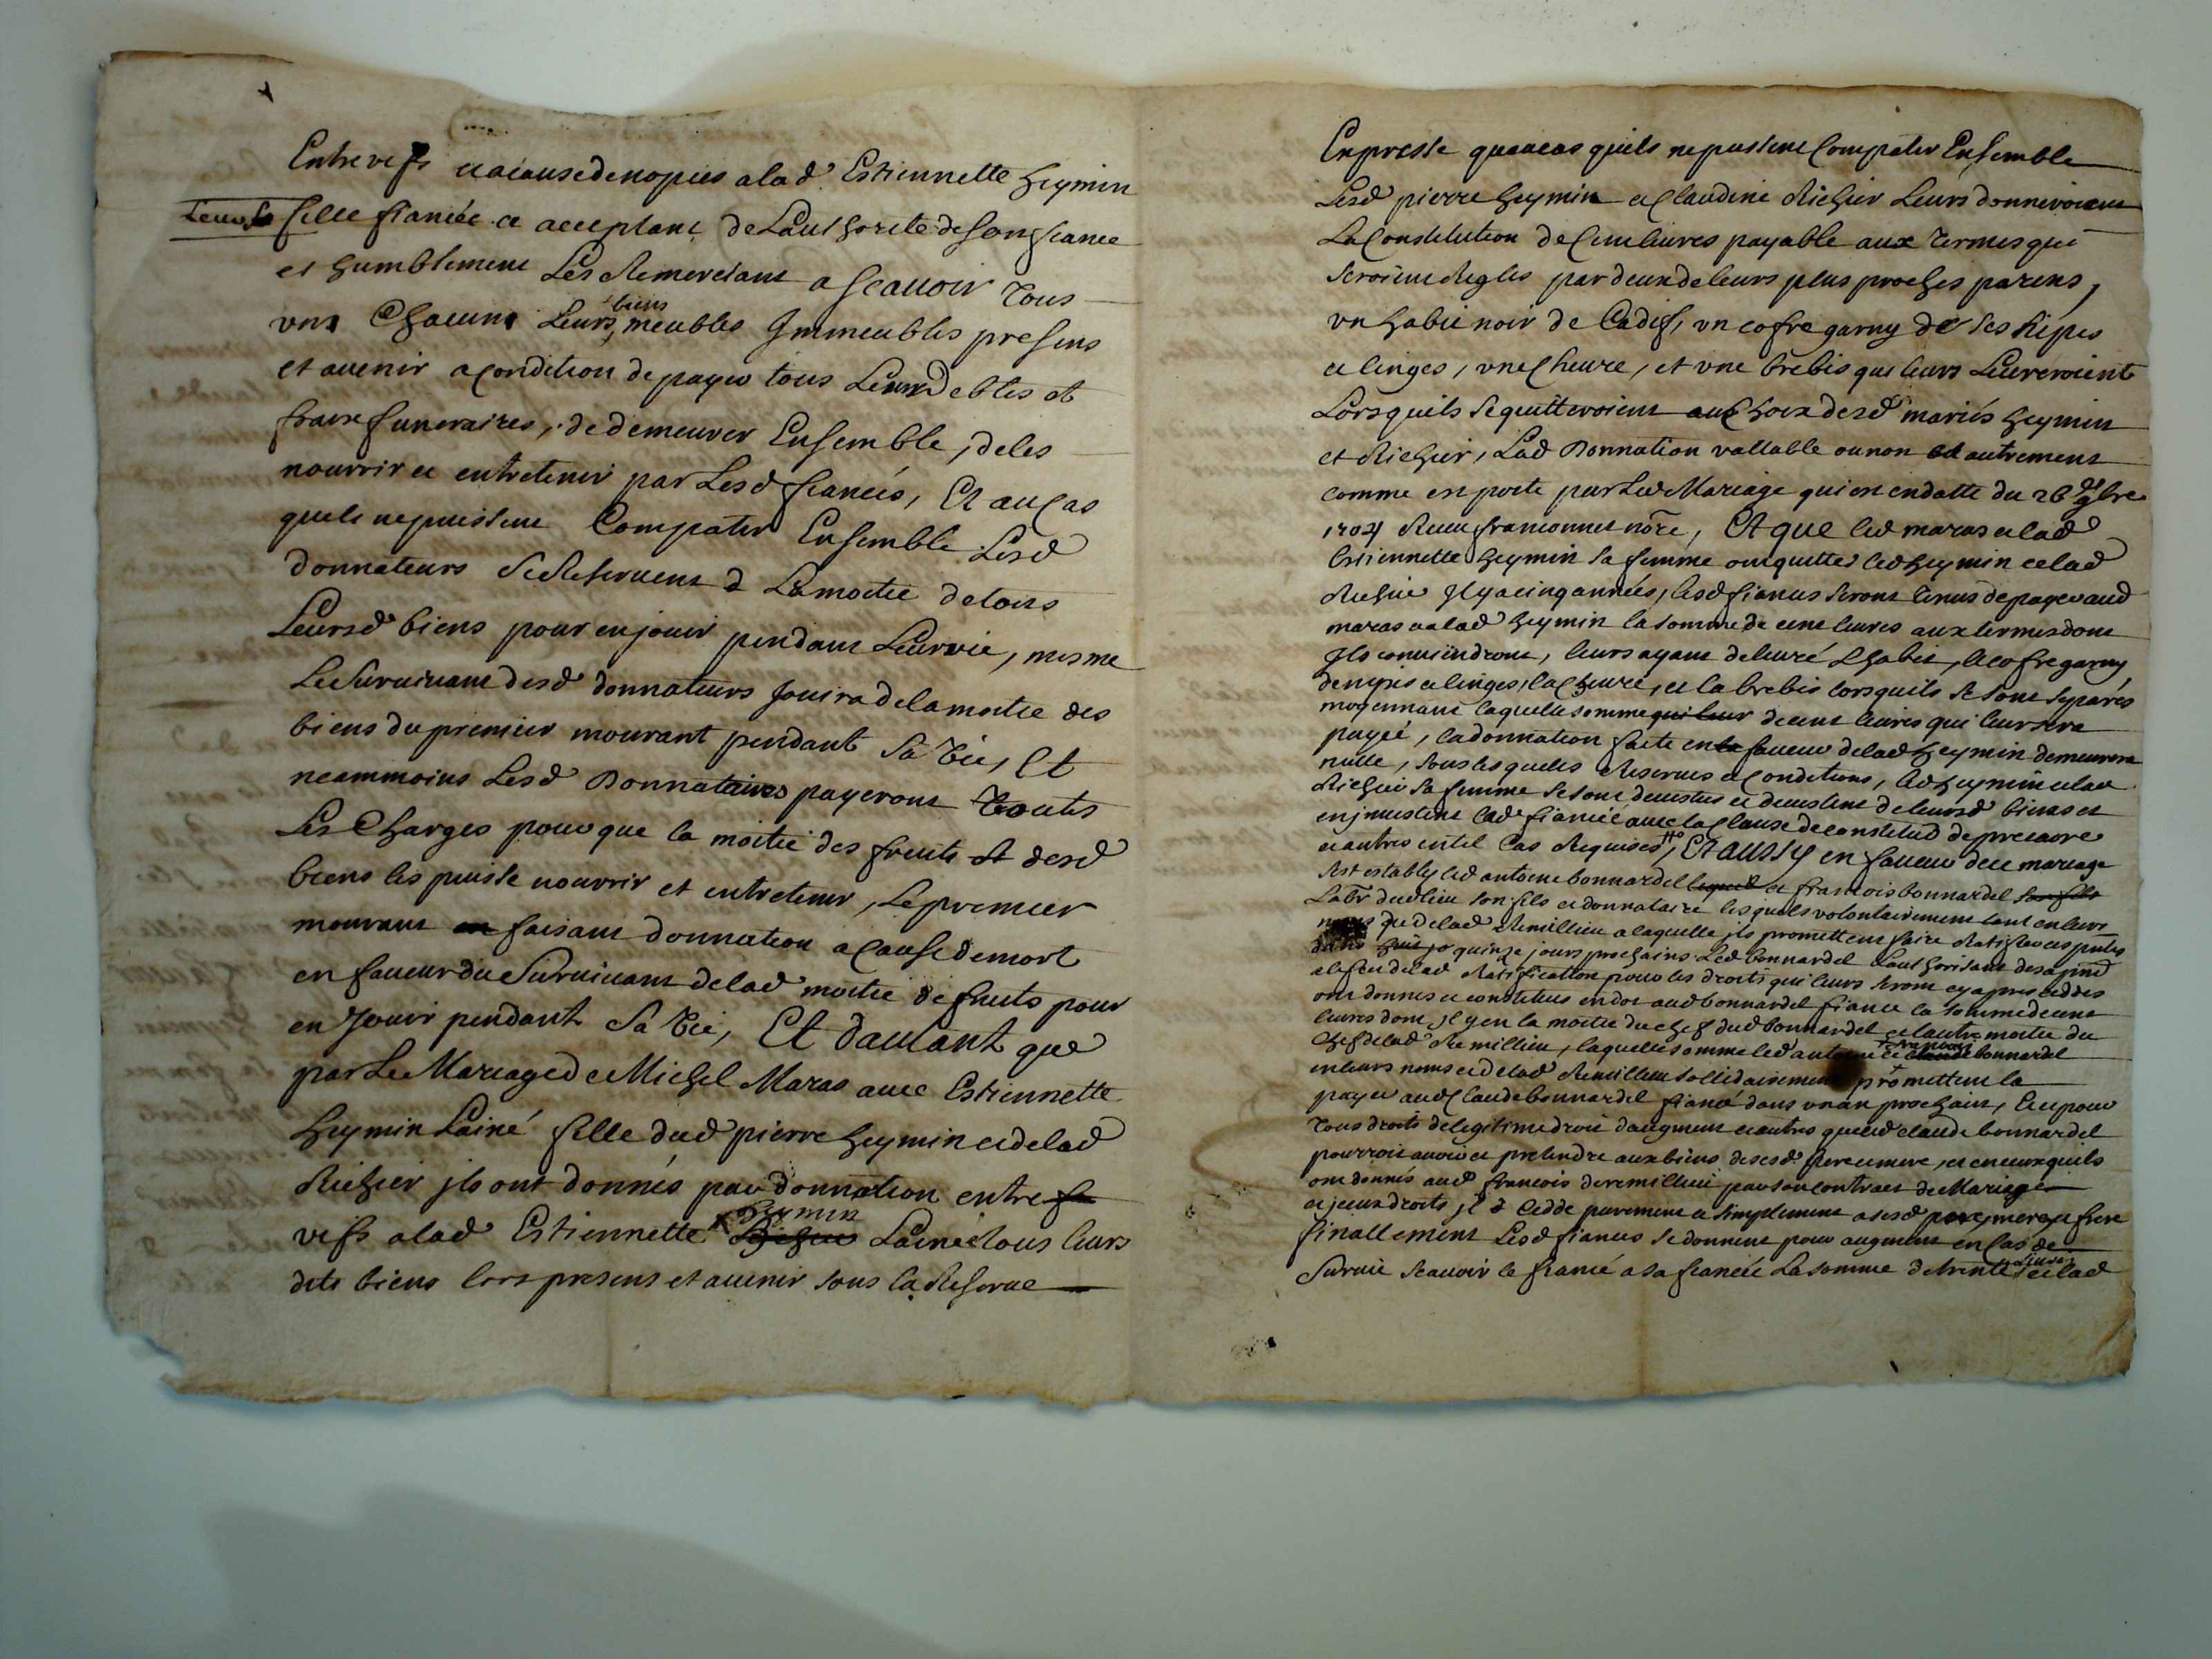 Entre vifs et a cause de nopces a lad Estiennette heymin
Leur
fille fiancée ce acceptant de Lauthorité de son fiance
et humblement Les Remerciant a scauoir Tous
vns Chacuns Leurs biens meubles Immeubles presens
et auenir a condition de payer tous Leurs debtes et
fraix funeraires, de demeurer Ensemble, de les
nourrir et entretenir par Lesd fiancés, Et au cas
quils ne puissent Compatir Ensemble Lesd
donnateurs se Reseruent La moitie de tous
Leursd biens pour en jouir pendant Leur vie, mesme
Le Suruiuant desd donnateurs Jouira de la moitie des
biens du premier mourant pendant Sa Vie, Et
neammoins Lesd Donnataires payeront Toutes
Les Charges pour que la moitie des fruits desd
biens les puisse nourrir et entretenir, Le premier
mourant en faisant donnation a cause de mort
en faueur du Suruiuant de lad moitie de fruits pour
en Jouir pendant Sa Vie, Et dautant que
par Le Mariage de Michel Maras auec Estiennette
heymin Lainé fille dud pierre heymin et de lad
Richier jls ont donnés par donnation entre
vifs a lad Estiennette heymin Lainée tous leurs
dits biens lors presens et auenir sous la Reserue
Expresse quau cas quils ne pussent Compatir Ensemble
Lesd pierre heymin et Claudine Richier Leurs donneroient
La Constitution de Cent liures payable aux termes qui
seroient Reglés par deux de leurs plus proches parens,
vn habit noir de Cadis, vn cofre garny de ses nipes
et linges, vne Cheure, et vne brebis que leurs Liureroient
Lorsquils se quitteroient au Choix desd mariés heymin
et Richier, Lad Donnation vallable ou non et autrement
comme est porté par Led Mariage qui est en datte du 26 9bre
1704 Receu francionnet nore, Et que led maras et lad
Estiennette heymin sa femme ont quittes led heymin et lad
Richier Il y a cinq années, lesd fiances seront tenus de payer aud
maras et a lad heymin la somme de cent liures aux termes dont
Ils conuiendront, leurs ayant deliuré Lhabit, le cofre garny
de nipes et linges, la Cheure, et la brebis lorsquils se sont separés
moyennant laquelle somme qui leur de cent liures qui leur sera
payée, la donnation faite en faueur de lad heymin demeurera
nulle, sous lesquelles Reserues et Conditions, led heymin et lad
Richier sa femme se sont deuestus et deuestent de leursd biens et
en jnuestent lad fiancée auec la Clause de constitut de precaire
et autres en tel Cas Requises, Et AUSSY en faueur de ce mariage
s'est estably led antoine bonnardel lequel et francois bonnardel son fils
Labr dud lieu son fils et donnataire lesquels volontairement tant en leurs
noms que de lad Remillieu a laquelle jls promettent faire Ratifier ces pntes
dans huit jo quinze jours prochains Led bonnardel Lauthorisant des apnt
a leffet de lad Ratification pour les droits qui leurs seront cy apres cedes
ont donnes et constitués en dot aud bonnardel fiance la somme de cent
liures dont il y en la moitie du chef dud bonnardel et lautre moitie du
chef de lad Remillieu, laquelle somme led antoine et francois bonnardel
en leurs noms et de lad Remillieu sollidairement promettent la
payer aud Claude bonnardel fiancé dans vn an prochain, Et pour
Tous droits de legitime droit d'augment et autres que led claude bonnardel
pourroit auoir et pretendre aux biens de sesd pere et mere, et en ceux quils
ont donnés aud francois de remillieu par son contract de Mariage
et jceux droits, jl a Cedde purement et simplement a sesd pere, mere et frere
finallement Lesd fiances se donnent pour augment en Cas de
Suruie scauoir le fiancé a sa fiancée La somme de trente liures et lad